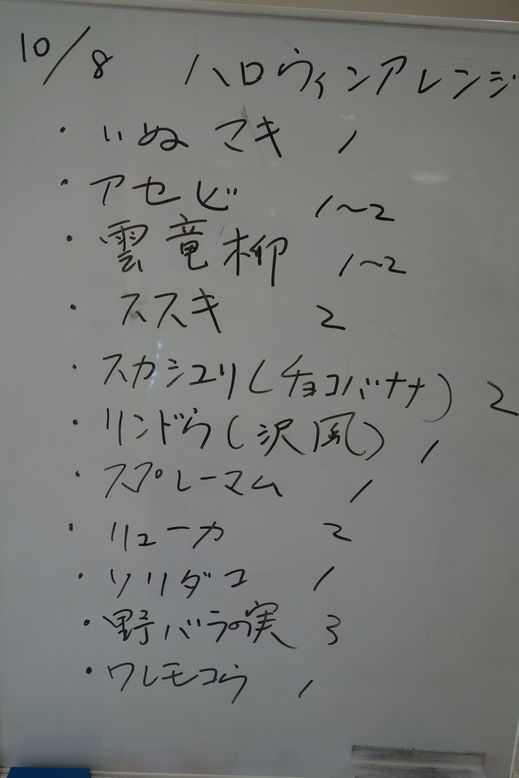 10/8 ハロウィンアレンジ
・いぬマキ 1
・アセビ 1~2
・雲竜柳 1~2
・ススキ 2
・スカシユリ(チョコバナナ) 2
・リンドウ(沢風) 1
・スプレーマム 1
・リューカ 2
・ソリダコ 1
・野バラの実 3
・ワレモコウ 1